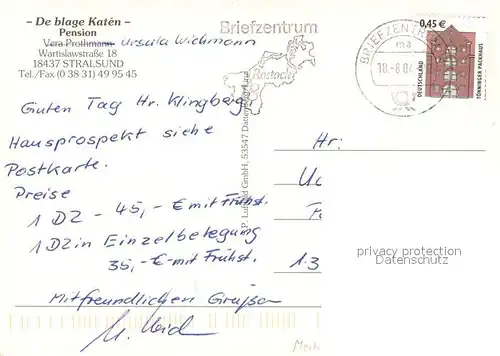 – De blage Katén –
Pension
Vera Prothmann Ursula Wichmann
Wartislawstraße 18
18437 STRALSUND
Tel./Fax (0 38 31) 49 95 45
Guten Tag Hr. Klingberg
Hausprospekt siehe
Postkarte.
Preise
1 DZ – 45,- € mit Frühst.
1 DZ in Einzelbelegung
35,- € mit Frühst.
Mit freundlichen Grüßen
Briefzentrum
Rostock
BRIEFZENTR
ma
18.-8.0
0,45 €
DEUTSCHLAND
TÖNNINGER PACKHAUS
53547 Dattenberg
Hr:
13
privacy protection
Datenschutz